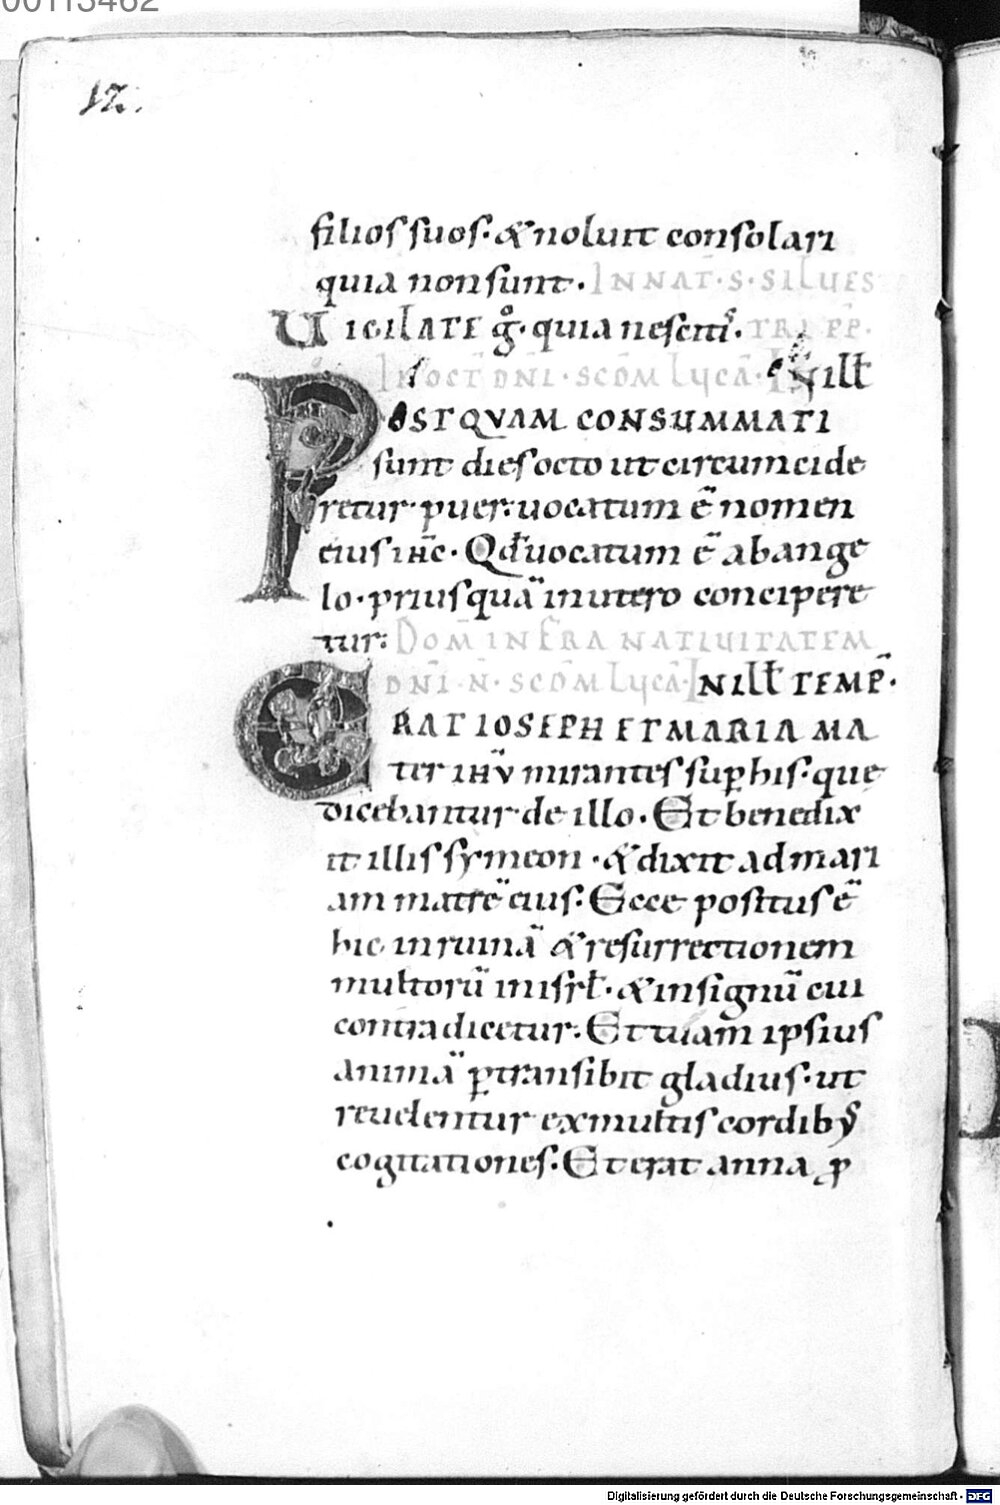 00113462
12.
filios suos· & noluit consolari
quia non sunt· IN NAT̄· S· SILUES
UIGILATE g̊· quia nesciti᷒· TRI PP̄·
IN OCT̄ DN̄I· SCD̄M LUCĀ· IN ILL̄
POSTQVAM CONSUMMATI
sunt dies octo ut circumcide
retur puer: uocatum ē nomen
eius ihc̄· Qd̄ uocatum ē ab ange
lo· priusquā in utero concipere
tur: DOM̄ INFRA NATIUITATEM
DN̄I· N̄· SCD̄M LUCĀ· IN ILL̄ TEMP̄·
ERAT IOSEPH ET MARIA MA
ter ihū mirantes sup̱ his· que
dicebantur de illo· Et benedix
it illis symeon· & dixit ad mari
am matrē eius: Ecce positus ē
hic in ruinā & resurrectionem
multorū in isrl̄· & in signū cui
contradicetur: Et tuam ipsius
animā p̱transibit gladius· ut
reuelentur ex multis cordibꝰ
cogitationes· Et erat anna ꝓ
Digitalisierung gefördert durch die Deutsche Forschungsgemeinschaft - DFG